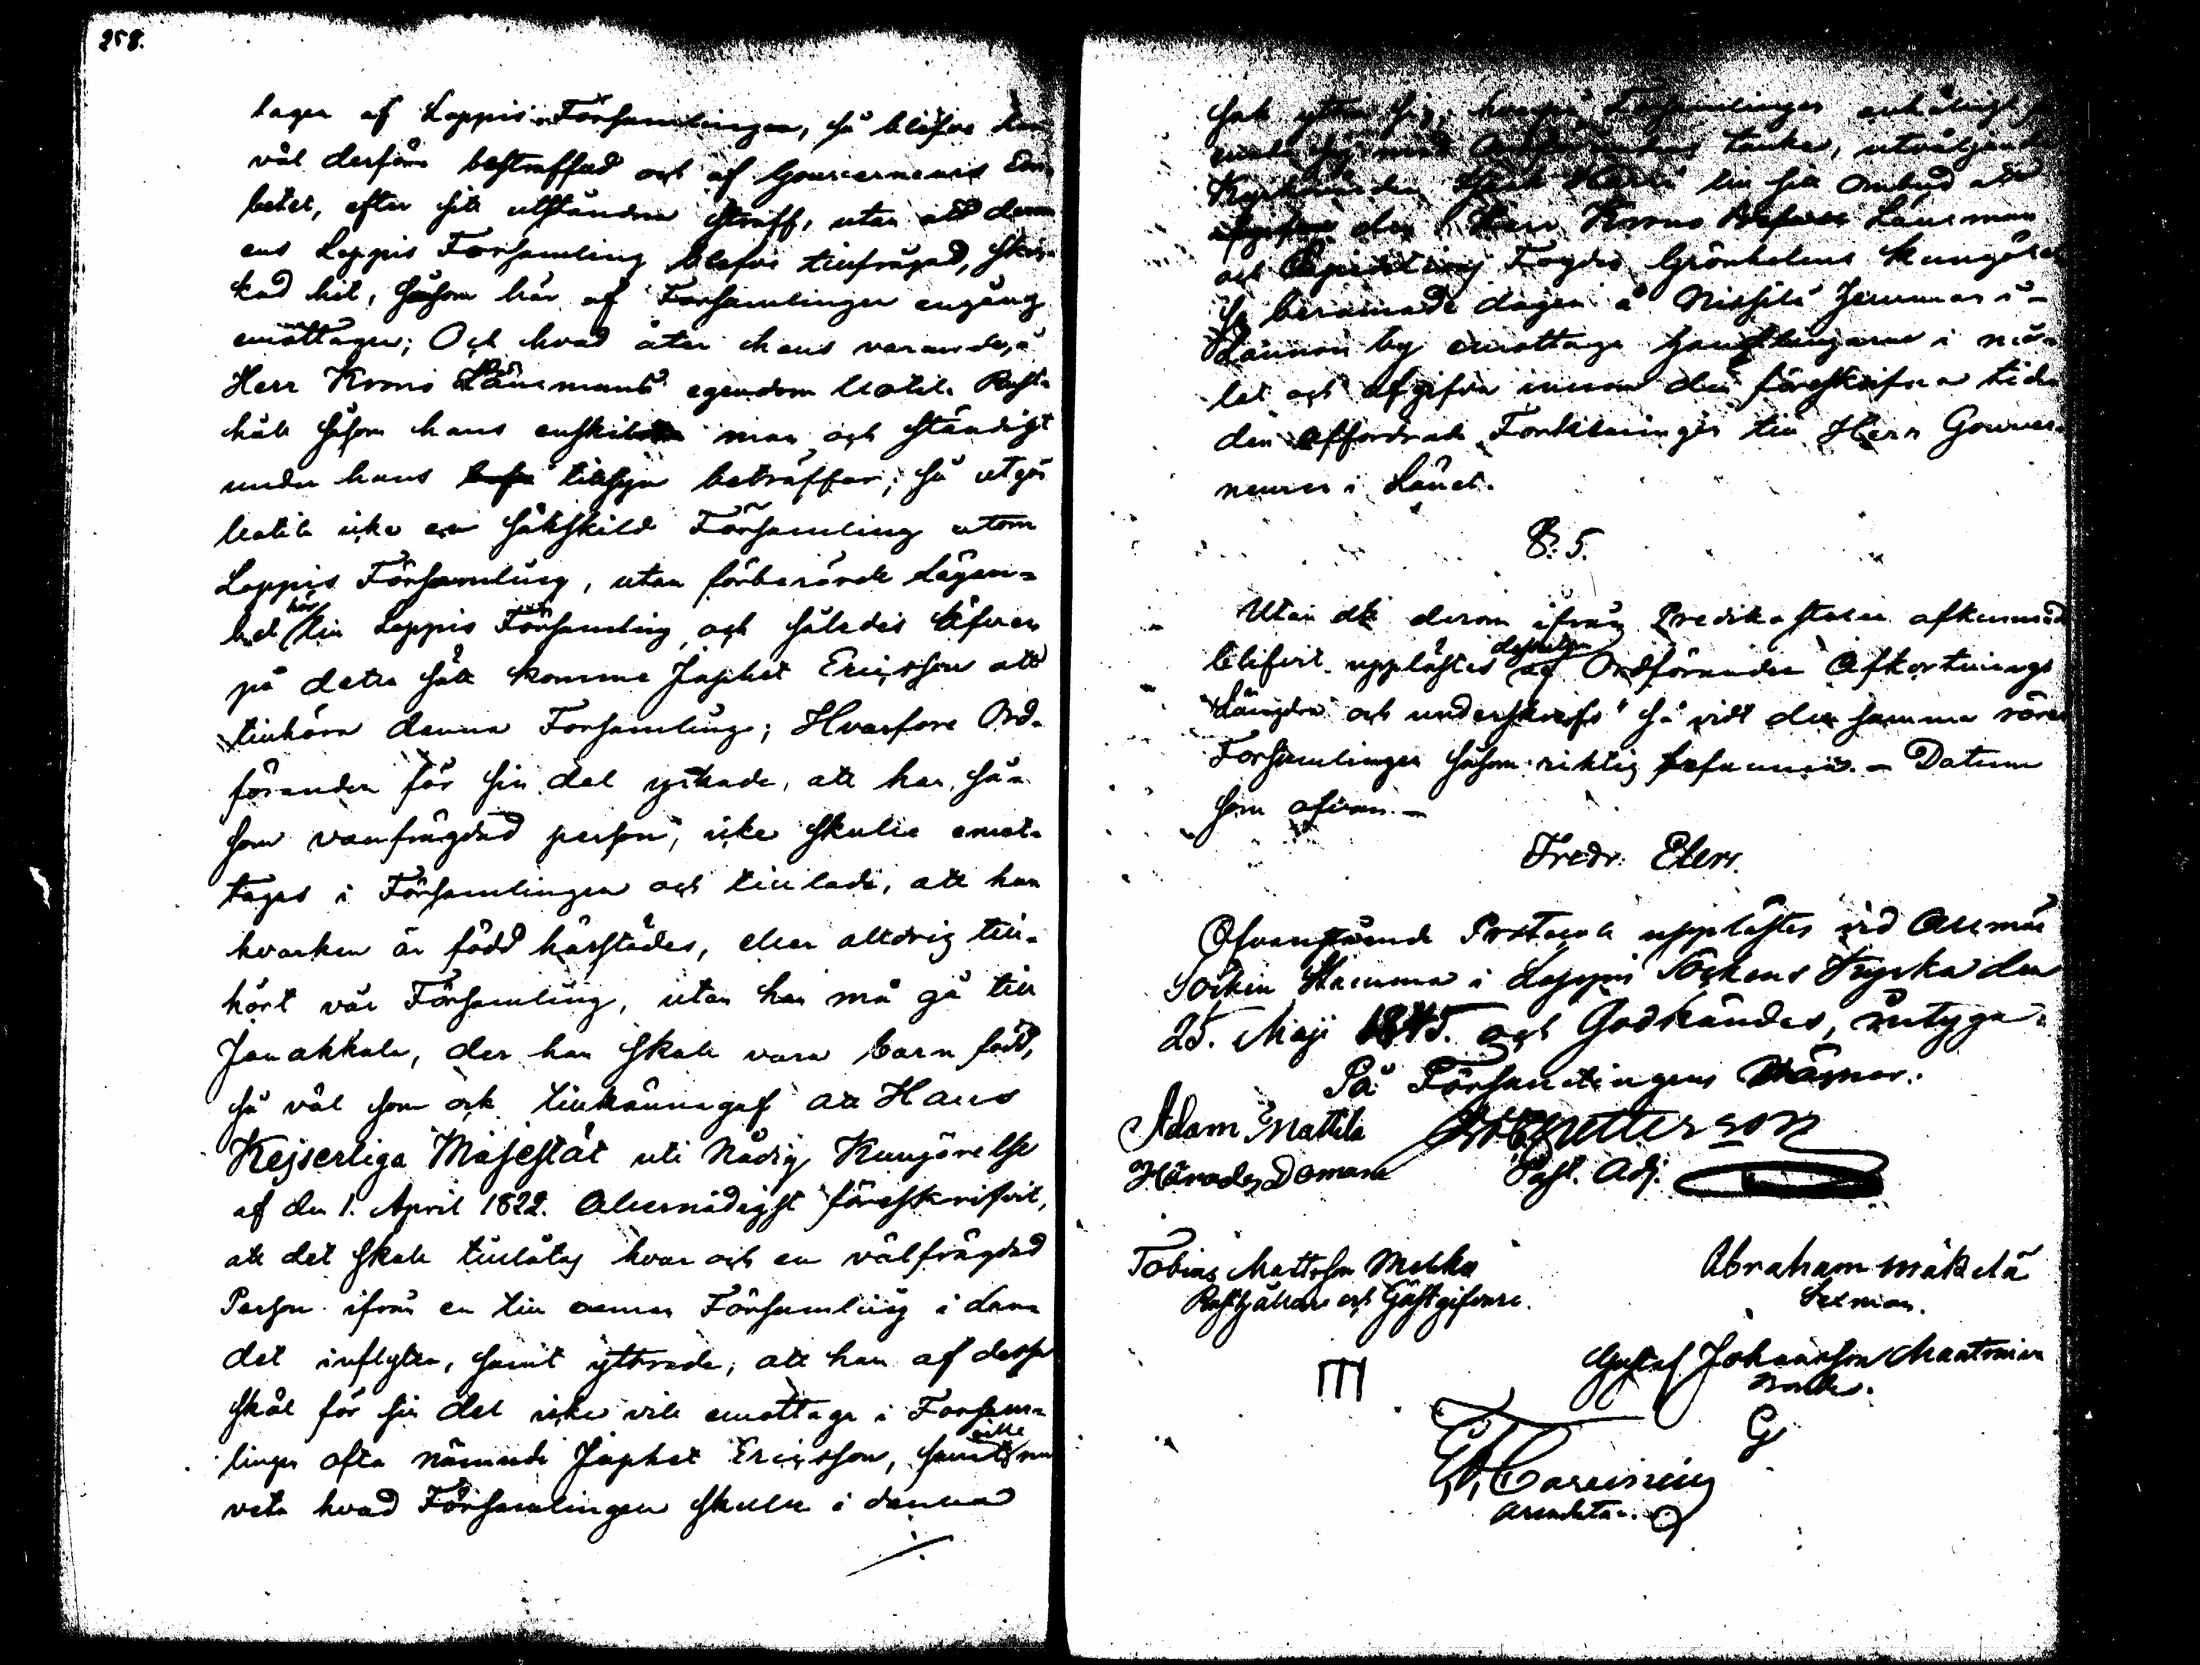 258.
tagen af Loppis Församlingen, så blefve han
väl derföre bestraffad och af Gouvernements Em-
betet, efter sitt utståndna straff, utan att denn
ens Loppis Församling blefve tillfrågad, skic-
kad hit, såsom här af Församlingen engång
emottagen; Och hvad åter hans varande, å
Herr Krono Länsmans egendom Uotila Rust-
håll såsom hans enskilda man och ständigt
under hans tillsyn beträffar; så utgör
Uotila icke en särskild Församling utom
Loppis Församling, utan förberörde Lägen-
het hör till Loppis Församling och således äfven
på detta sätt komme Japhet Ericsson att
tillhöra denna Församling; Hvarfore Ord-
föranden för sin del yrkade, att han, så-
som vanfrägdad person, icke skulle emot-
tagas i Församlingen och tillade, att han
hvarken är född härstädes, eller alldrig till-
hört vår Församling, utan han må gå till
Janakkala, der han skall vara barn född,
så väl som ock tillkännagaf att Hans
Kejserliga Majestät uti Nådig Kungörelse
af den 1. April 1822. Allernådigst föreskrifvit,
att det skall tillåtas hvar och en välfrägdad
Person ifrån en till annan Församling i Lan-
det inflytta, samt yttrade, att han af dessa
skäl för sin del icke vill emottaga i Försam-
lingen ofta nämnde Japhet Ericsson, samt ville nu
veta hvad Församlingen skulle i denna
./.
sak yttra sig, hvarpå Församlingen enhälligt
med Ordförandens tanke, utväljande
Kyrkovärden till sitt Ombud att
den Herr Krono Länsman
och Expeditions Fogden Grönholms kungöres
beramade dagen å Nissilä Hemman i
Länmän by emottaga Handlingarne i må-
let och afgifva innom den föreskrifna tiden
den affordrade Forklaringen till Herr Gouver-
neuren i Länet.
§. 5.
Utan att derom ifrån Predikostolen afkunnad
blifvit upplästes dessutom af Ordföranden Afkortnings
Längden och underskrefs så vidt den samma rörer
Forsamlingen såsom riktig befunnen. - Datum
som ofvan. -
Fredr: Elers.
Ofvanstående Protocoll upplästes vid Allmän
Sockne Stämma i Loppis Sockens Kyrka den
25. Maji 1845. och Godkändes, intyga.
På Församlingens Vägnar:
Adam Mattila
Härads Domare
Petterson
Past. Adj.
Tobias Mattsson
Rusthållare och Gästgifvare.
Abraham Mäkelä
Sexman.
Gustaf Johansson
G
Arrendator.